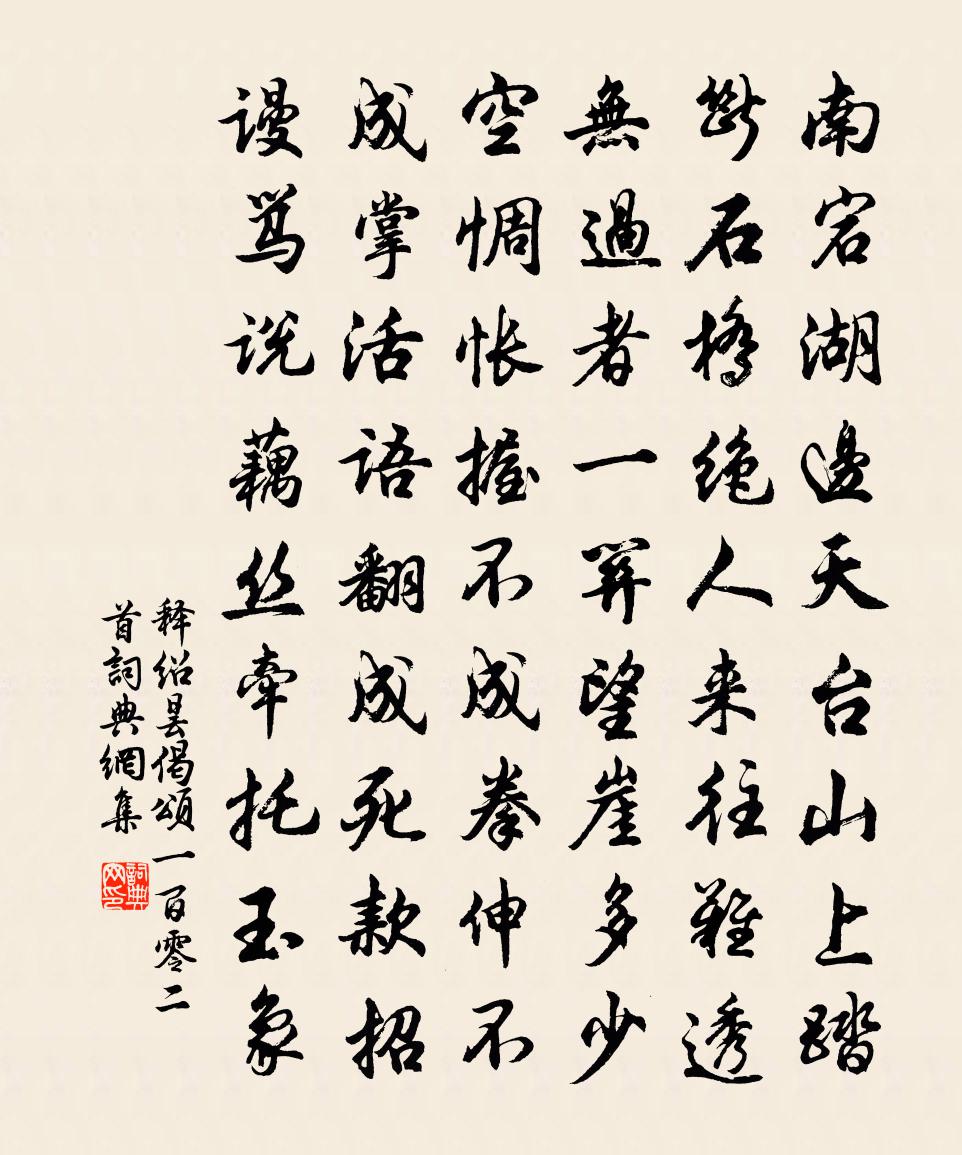 南宕湖邊天台山上踏
斷石橋绝人来往難透
無過者一著望崖多少
空惆怅握不成拳伸不
成掌活语翻成死款招
谩骂说藕丝牵托玉象
释绍昙偈颂一百零二
首詞典網集
詞典網印